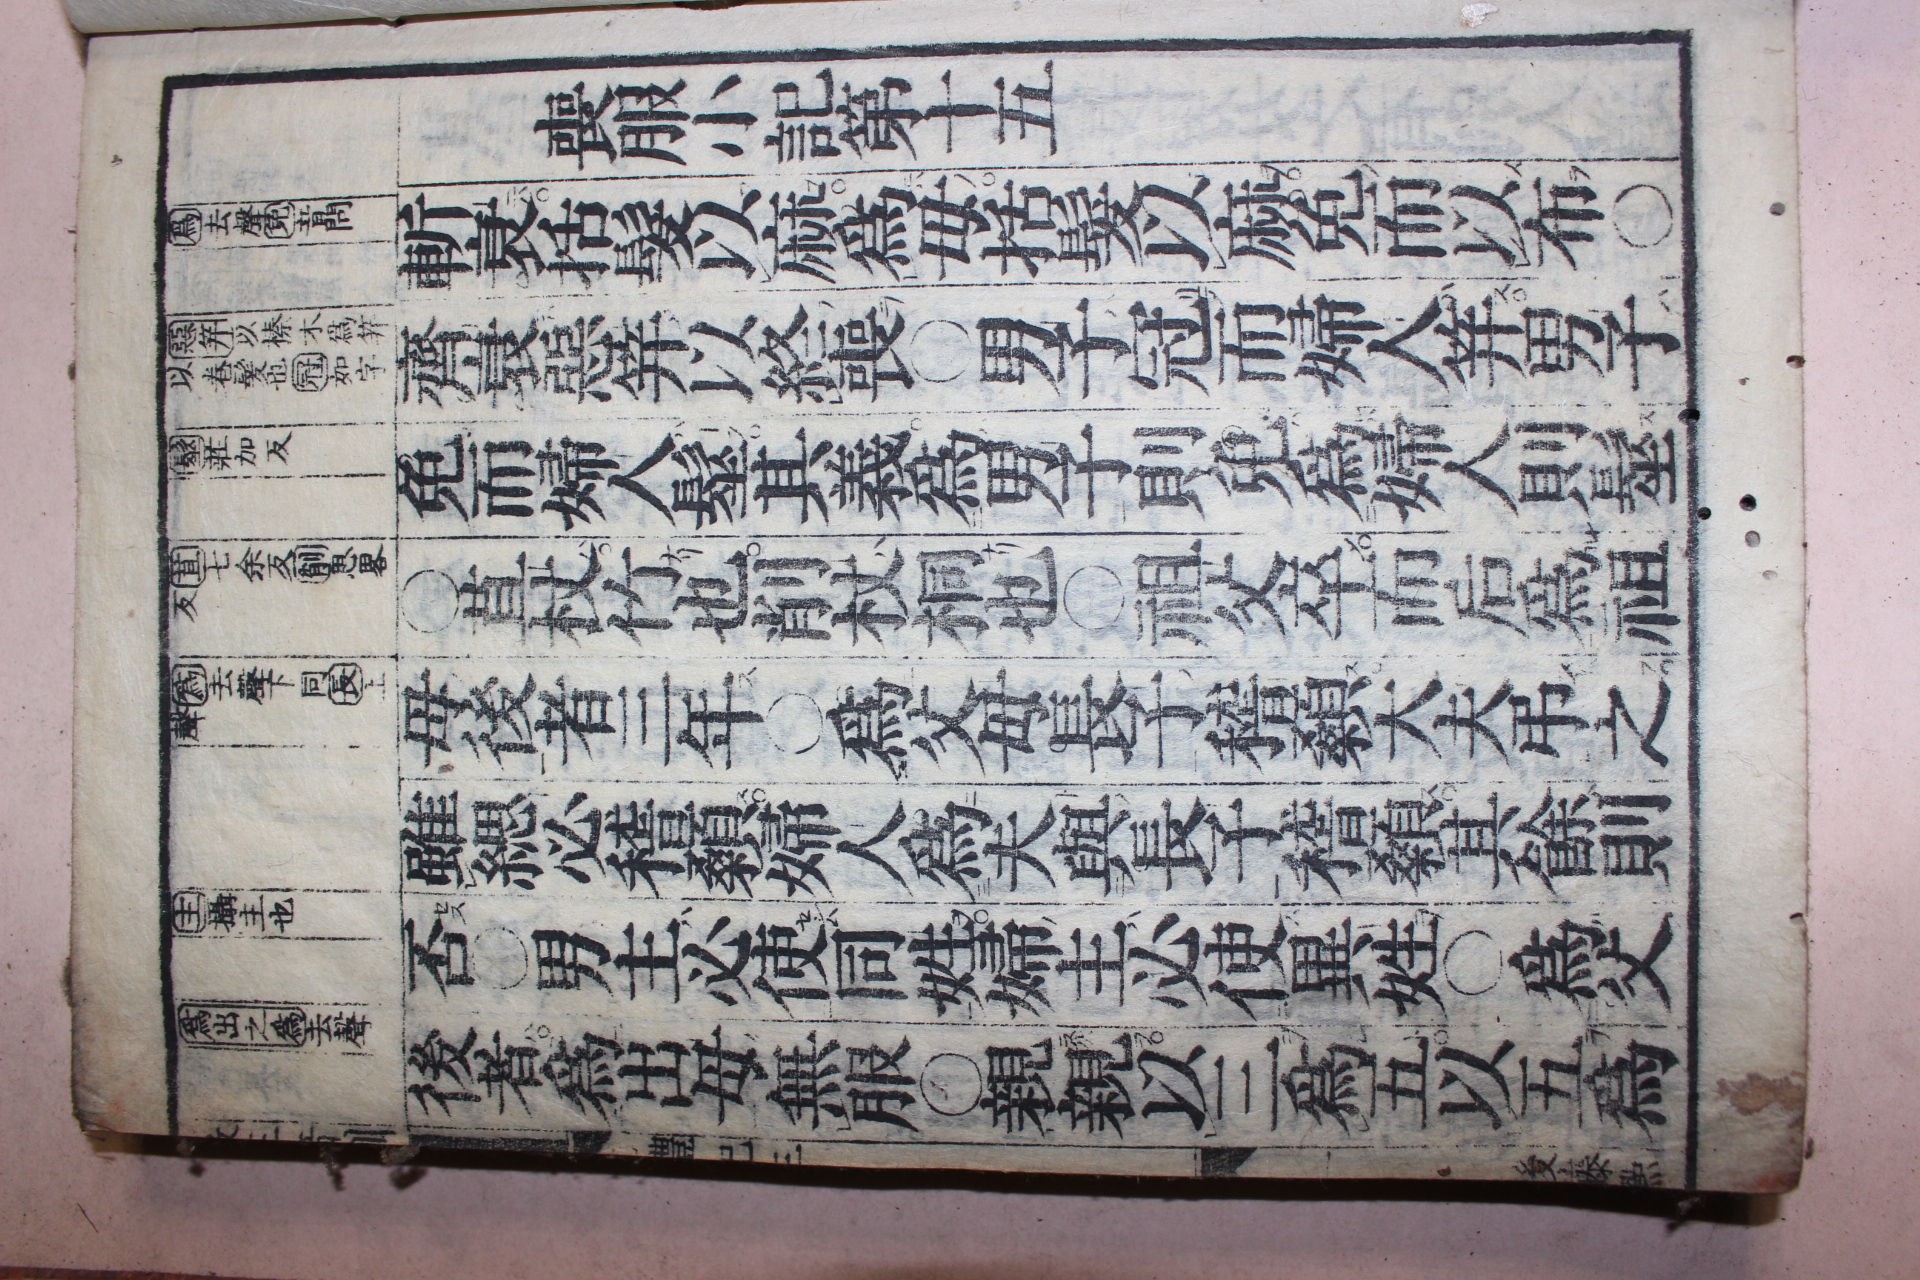 喪服小記第十五
斬衰括髮以麻爲母括髮以麻免而以布○
齊衰惡笄以終喪○男子冠而婦人笄男子
免而婦人髽其義爲男子則免爲婦人則髽
○苴杖竹也削杖桐也○祖父卒而后爲祖
母後者三年○爲父母長子稽顙大夫弔之
雖緦必稽顙婦人爲夫與長子稽顙其餘則
否○男主必使同姓婦主必使異姓○爲父
後者爲出母無服○親親以三爲五以五爲
爲去聲免音問
惡笄以榛木爲笄
以卷髮也冠如字
髽莊加反
苴七余反削思畧
反
爲去聲下同長上
聲
主攝主也
爲出之爲去聲
禮記三